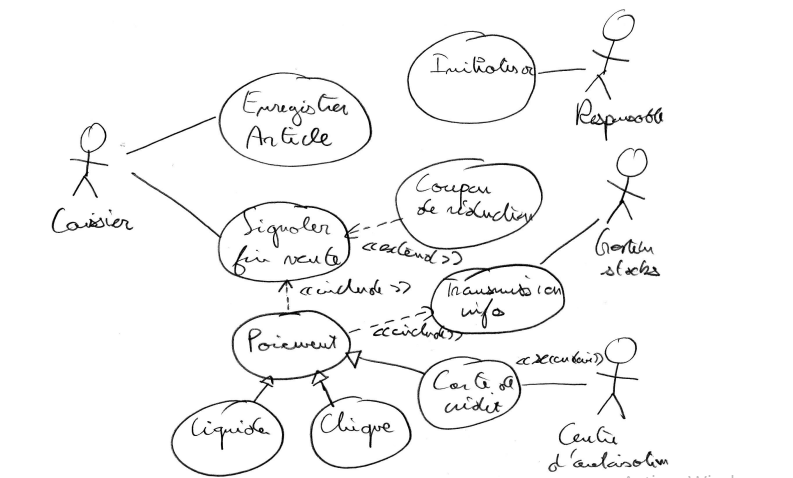 Initialiser
Responsable
Enregistrer
Article
Caissier
Coupon
de réduction
Signaler
fin vente
<<extend>>
Gestion
stocks
<<include>>
Transmission
infos
<<include>>
Paiement
<<secondaire>>
Carte de
crédit
Liquide
Chèque
Centre
d'autorisation